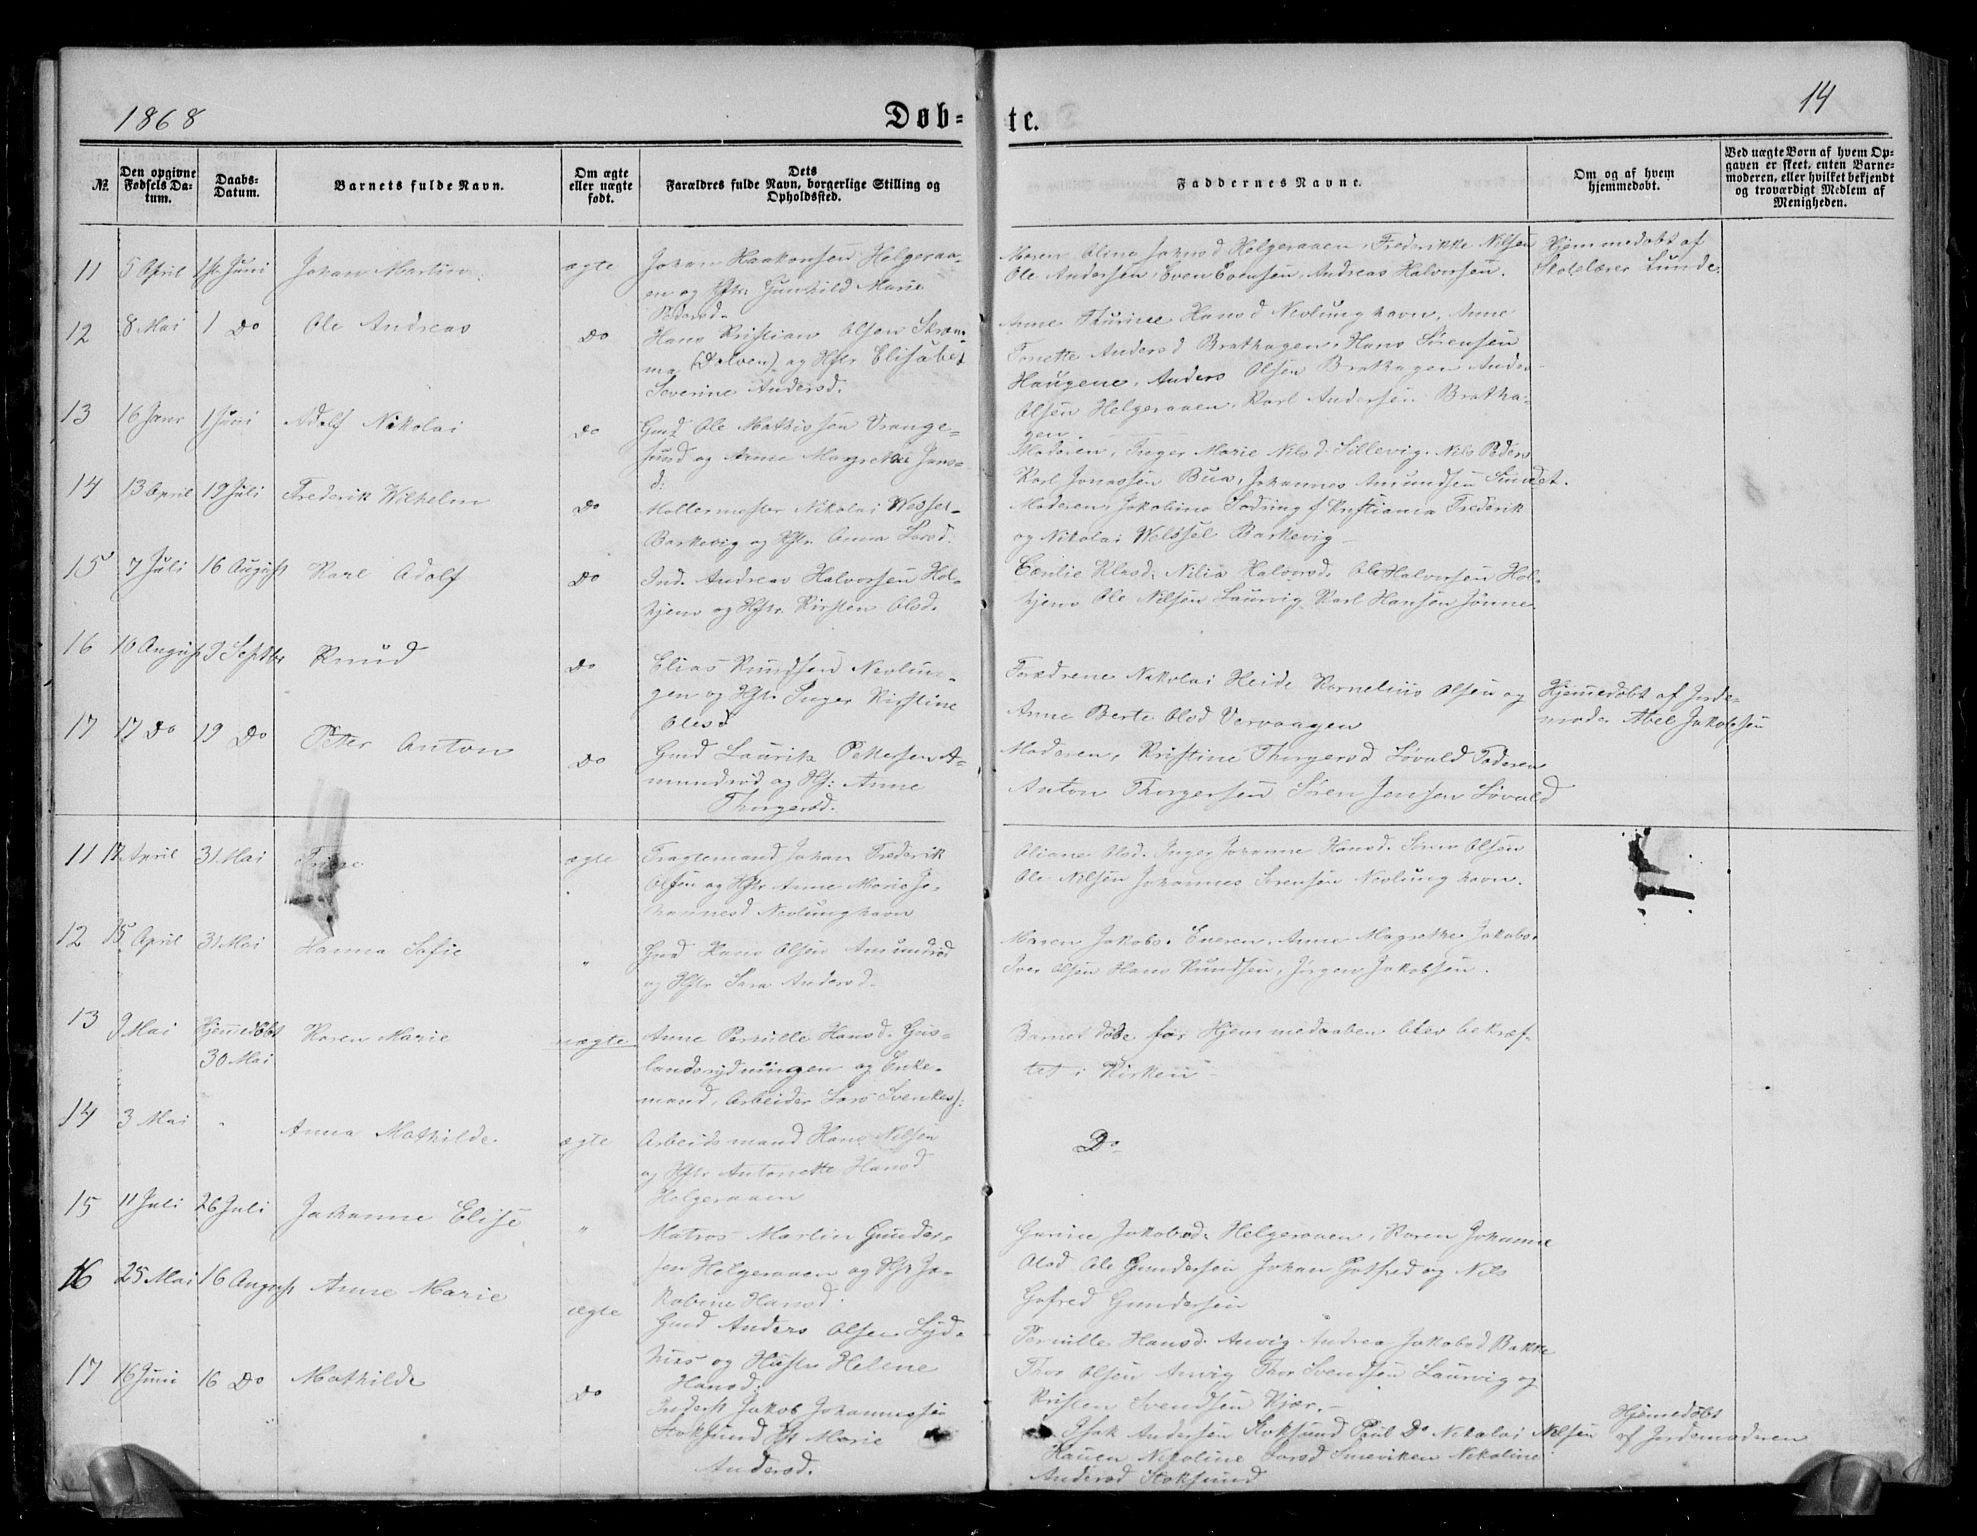 1868
Døb-
te.
14
№
Den opgivne Fødsels Da-tum.
Daabs-Datum.
Barnets fulde Navn.
Om ægte eller uægte født.
Dets Forældres fulde Navn, borgerlige Stilling og Opholdssted.
Faddernes Navne.
Om og af hvem hjemmedøbt.
Ved uægte Børn af hvem Op-gaven er skeet, enten Barne-moderen, eller hvilket bekjendt og troværdigt Medlem af Menigheden.
11 5 April 1ste Juni Johan Martin ægte
Johan Haakonsen Helgeraa-
en og Hstr Gunhild Marie
Maren Oline Johnsd Helgeraaen, Frederikke Nilsen
Ole Andersen, Even Evensen, Andreas Halvorsen.
Hjemmedøbt af
Skolelærer Lunde.
12 8 Mai 1 Do Ole Andreas Do
Hans Kristian Olsen
(Dolven) og Hstr Elisabet
Severine Andersd.
Anne Thurine Hansd Nevlunghavn, Anne
Tonette Andersd Brathagen, Hans Sørensen
Haugene, Anders Olsen Brathagen Anders
Olsen Helgeraaen, Karl Andersen Bratha-
gen.
13 16 Janr 1 Juni Adolf Nikolai Do
Gmd Ole Mathissen Vrange-
sund og Anne Margrethe Jans-
d.
Moderen, Inger Marie Nilsd Sillevig. Nils Peders
Karl Jonassen Bua, Johannes Amundsen Sundet.
14 13 April 19 Juli Frederik Wilhelm Do
Møllermester Nikolai Wessel
Barkevig og Hstr. Anna Larsd.
Moderen, Jakobine Sødring f Kristiania Frederik
og Nikolai Wessel Barkevig
15 7 Juli 16 August Karl Adolf Do
Ind. Andreas Halvorsen Hol-
hjem og Hstr. Kirsten Olsd.
Nilia Halvorsd. Ole Halvorsen Hol-
hjem Ole Nilsen Laurvig Karl Hansen Jønne
16 10 August 9 Septbr Knud Do
Elias Knudsen Nevlun-
gen og Hstr Inger Kirstine
Olesd
Forældrene Nikolai Heide Kornelius Olsen og
Anne Berte Olsd Vervaagen
Hjemmedøbt af Jorde-
mode. Abel Jakobsen
17 17 Do 19 Do Peter Anton Do
Gmd Lauritz Pettersen A-
mundrød og Hst: Anne
Thorgersd.
Moderen, Kristine Thorgersd Løvald Faderen
Anton Thorgersen Søren Jensen Løvald
11 12 April 31. Mai ægte
Fragtemand Johan Frederik
Olsen og Hstr Anne Marie Jo-
hannesd Nevlunghavn
Oliane Olsd. Inger Johanne Hansd. Olsen
Ole Nilsen Johannes Sørensen Nevlunghavn.
12 15 April 31. Mai Hanna Sofie "
Gmd Hans Olsen Amundrød
og Hstr Sara Andersd.
Maren Jakobs. Eneren, Anne Magrethe Jakobs.
Iver Olsen Hans Knudsen, Jørgen Jakobsen.
13 9 Mai Hjemmedøbt
30 Mai Karen Marie uægte
Anne Pernille Hansd. Gus-
landsrydningen og Enke-
mand, Arbeider Lars Svenkes:
Barnet døde før Hjemmedaaben blev bekræf-
tet i Kirken
14 3 Mai Anna Mathilde. ægte
Arbeidsmand Hans Nilsen
og Hstr Antonette Hansd
Helgeraaen
Do
15 11 Juli 26 Juli Johanne Elise "
Matros Martin Gunder-
sen Helgeraaen og Hstr Ja-
kobine Hansd.
Gurine Jakobsd. Helgeraaen, Karen Johanne
Olsd Ole Gundersen Johan Gotfred og Nils
Gofred Gundersen
16 25 Mai 16 August Anne Marie ægte
Gmd Anders Olsen Syd-
hus og Hustr Helene
Hansd.
Pernille Hansd. Anvig Andrea Jakobsd Bakke
Thor Olsen Anvig Thor Svendsen Laurvig og
Kristen Svendsen Kjær.
17 16 Juni 16 Do Mathilde Do
Inderst Jakob Johannessen
Stoksund Hst Marie
Andersd.
Isak Andersen Stoksund Paul Do Nikolai Nilsen
Nikoline Larsd Smeviken Nikoline
Andersd Stoksund
Hjemmedøbt
af Jordemoderen